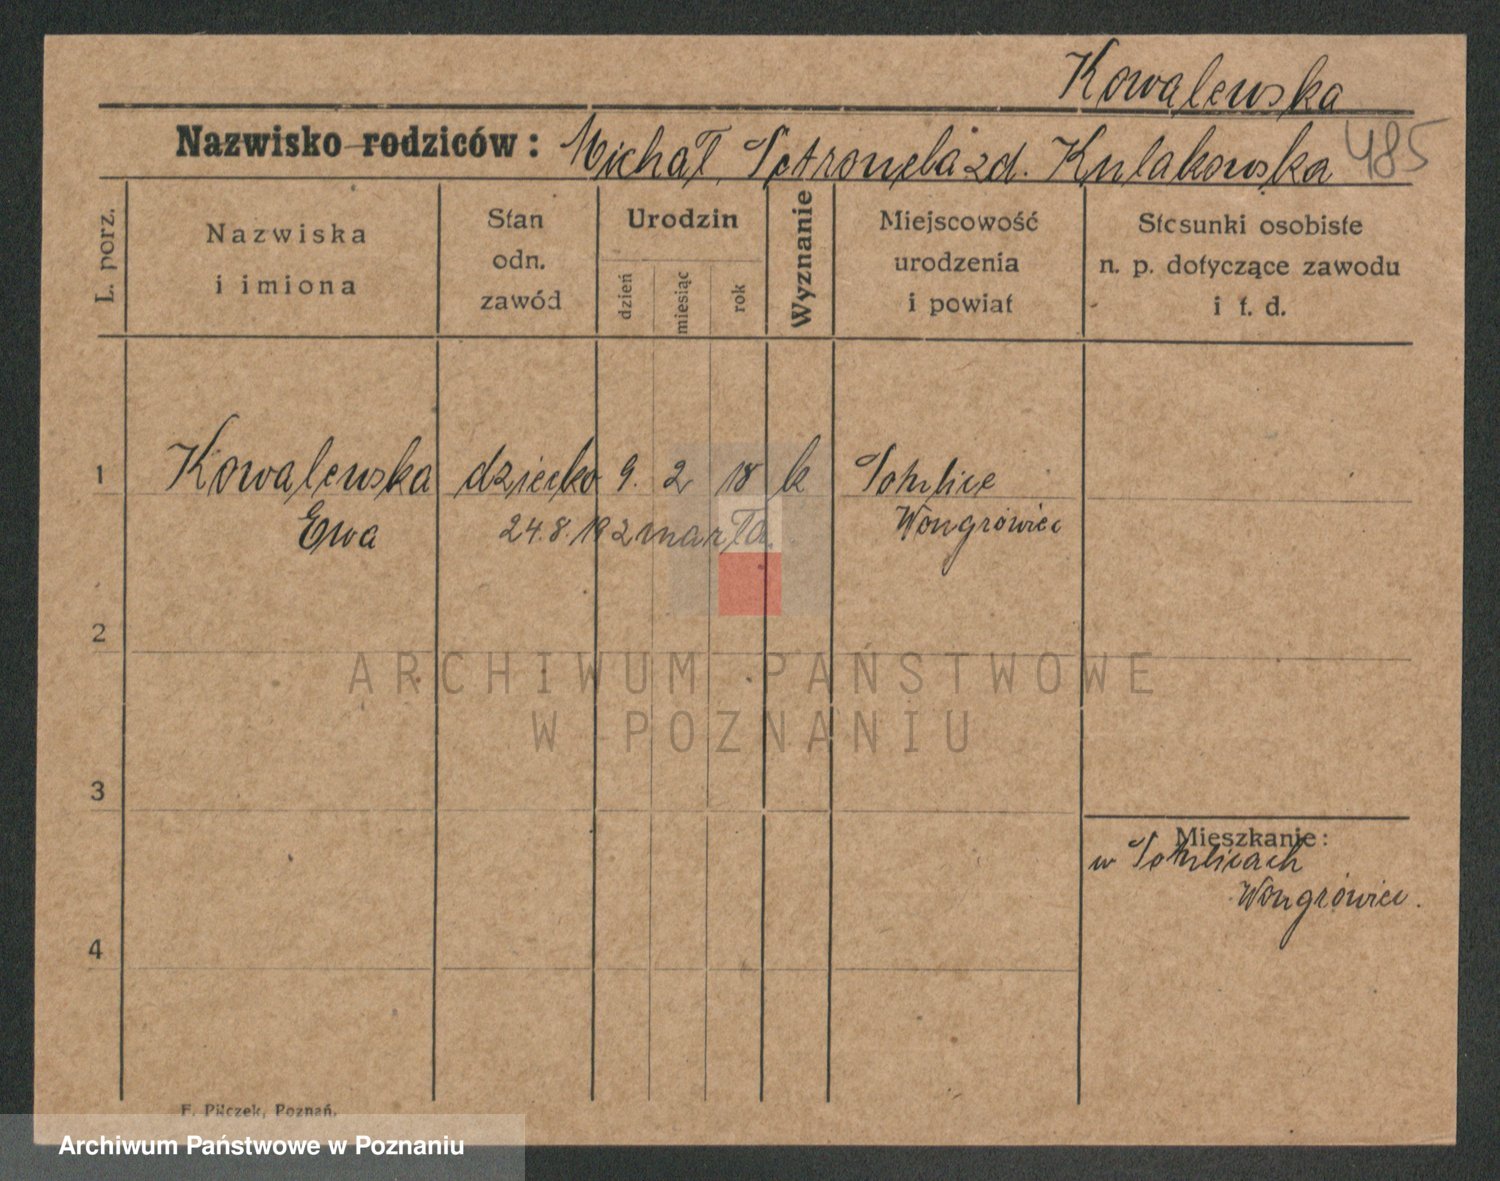 Kowalewska
Nazwisko rodziców: Michał, Petronela zd. Kulakowska 485
L. porz.
Nazwiska
i imiona
Stan
odn.
zawód
Urodzin
dzień
miesiąc
rok
Wyznanie
Miejscowość
urodzenia
i powiat
Stosunki osobiste
n. p. dotyczące zawodu
i t. d.
1 Kowalewska dziecko 9. 2 18 k
Ewa 24.8.192 marła Wongrówiec
2
3
4
Mieszkanie:
w
Wongrówiec.
F. Pilczek, Poznań.
ARCHIWUM PAŃSTWOWE
W POZNANIU
Archiwum Państwowe w Poznaniu